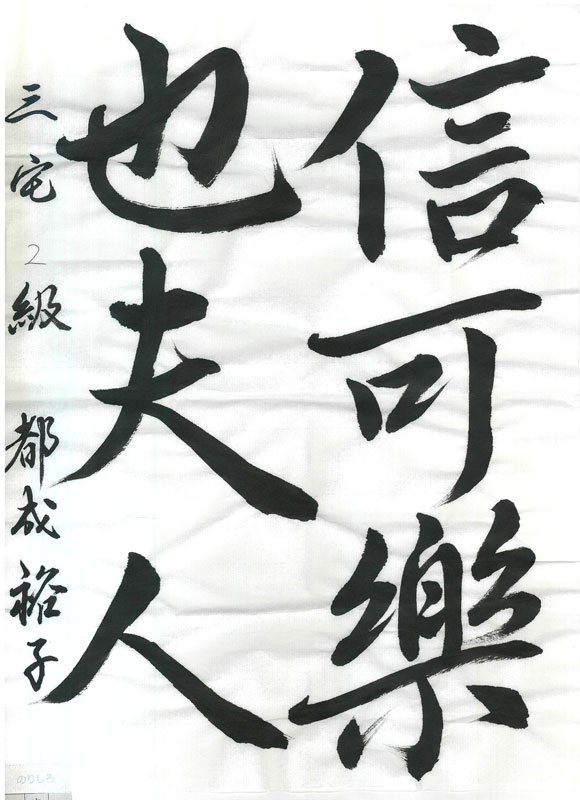 信可樂
也夫人
三宅 2級 都成裕子
のりしろ